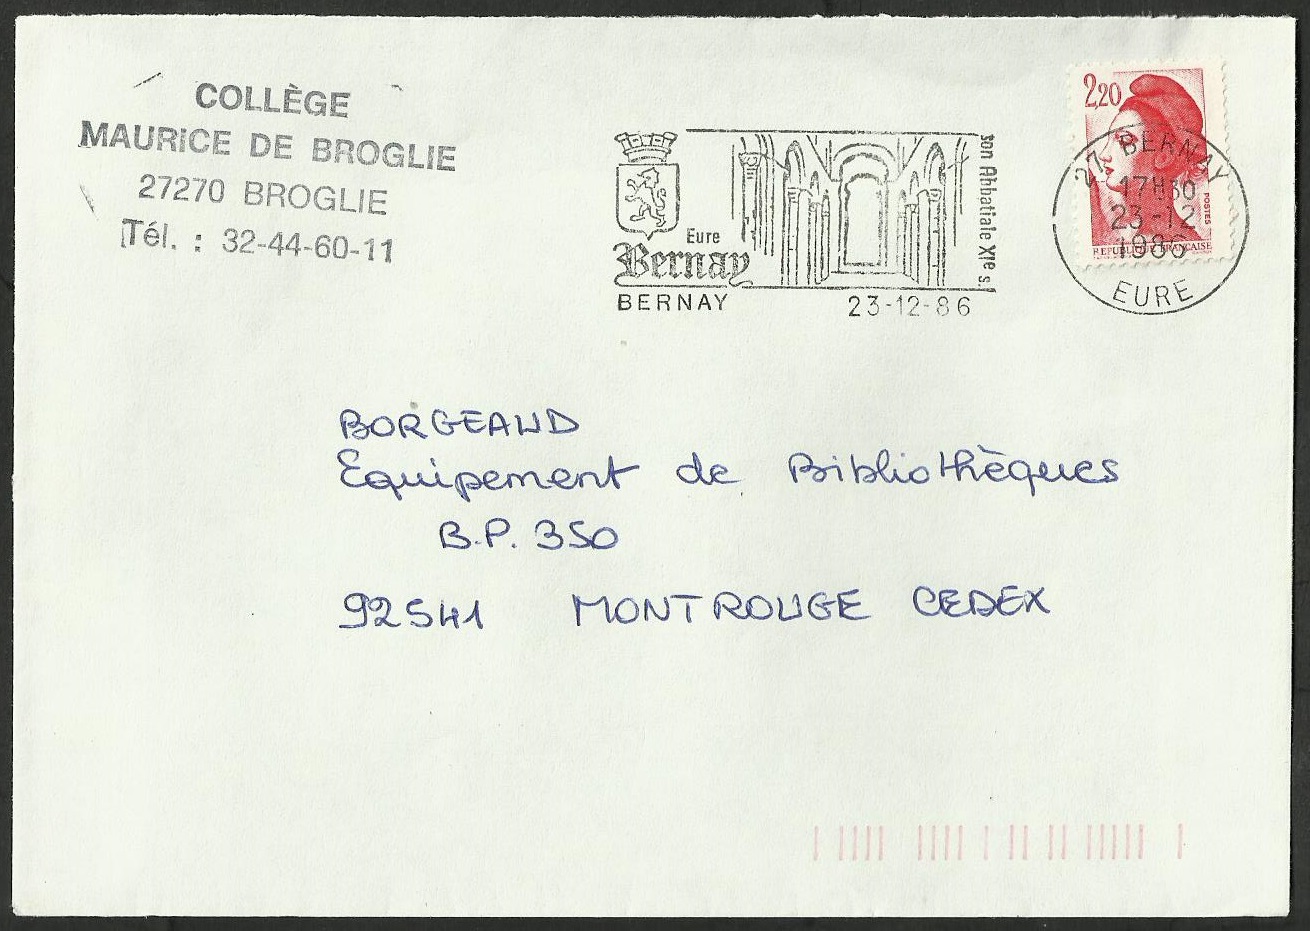 COLLÈGE
MAURICE DE BROGLIE
27270 BROGLIE
Tél. : 32-44-60-11
Eure
Bernay
son Abbatiale XIe s.
BERNAY 23-12-86
2,20
POSTES
REPUBLIQUE FRANÇAISE
27 BERNAY
17H30
23-12
1986
EURE
BORGEAUD
Equipement de Bibliothèques
B.P. 350
92541 MONTROUGE CEDEX